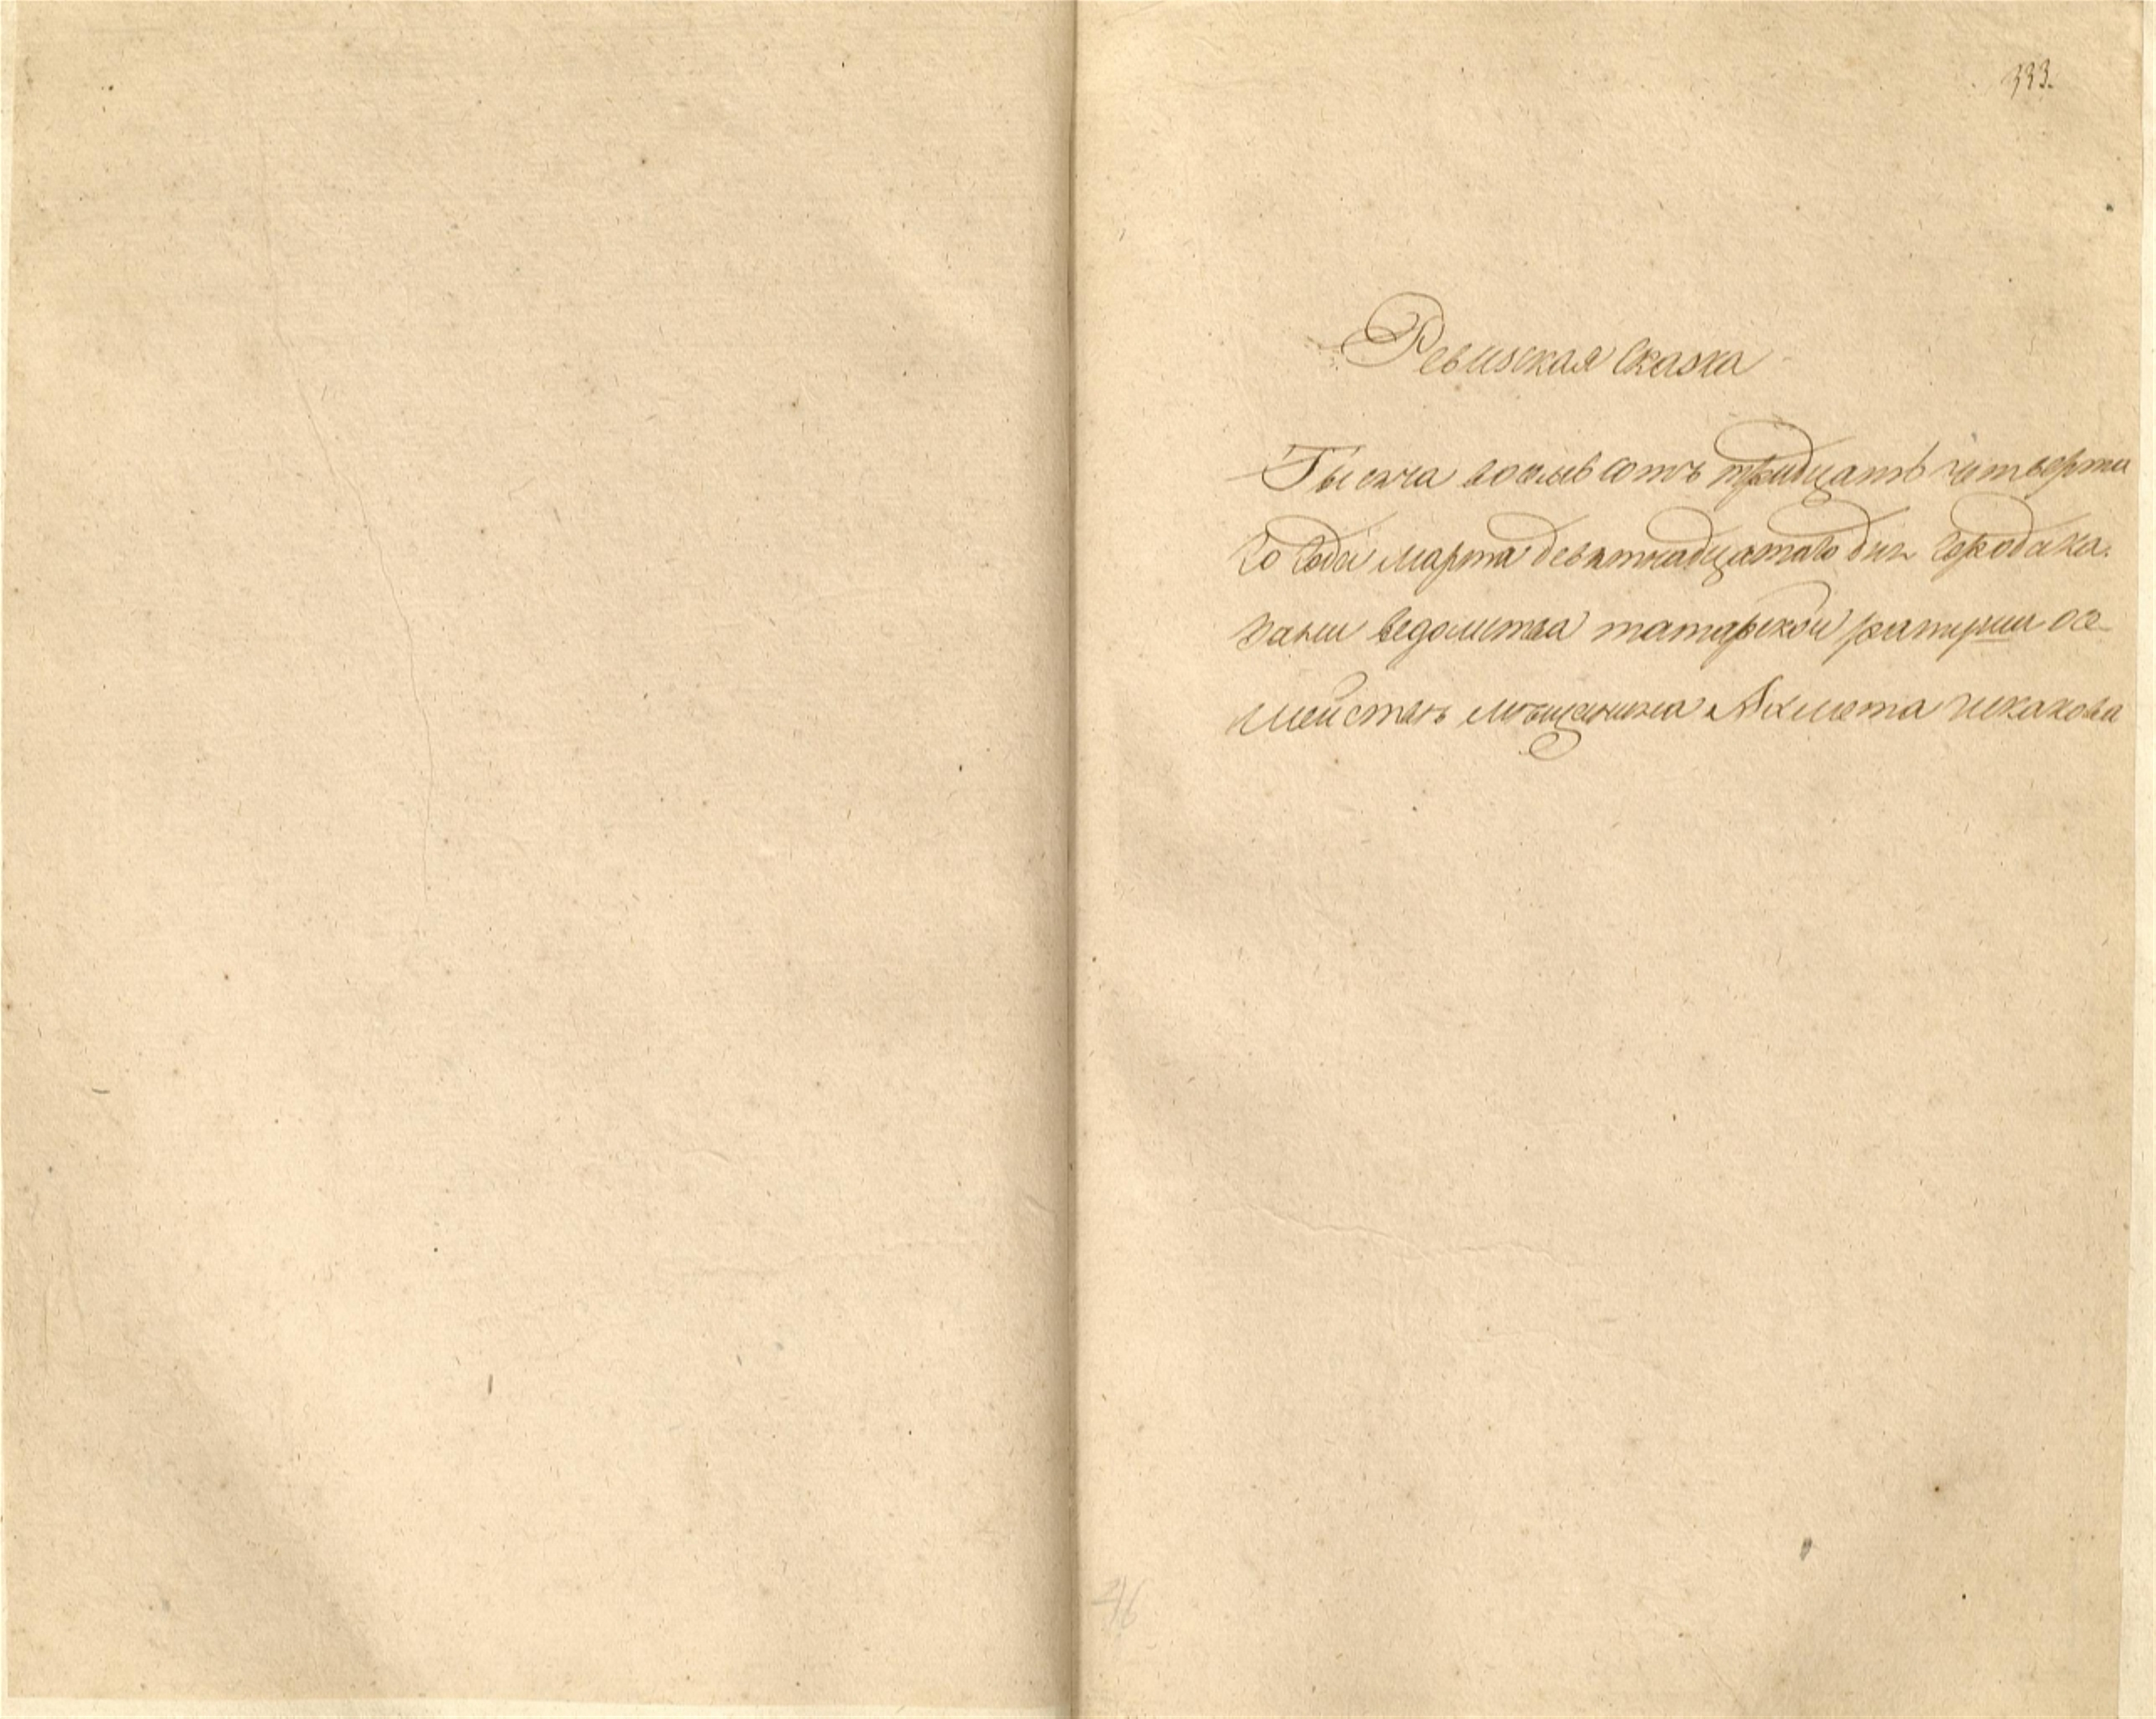 333.
Ревизская сказка
Тысяча восмь сотъ тридцать четверта
го года марта девятнадцатого дня города Ка.
зани ведомства татарской ратуши о се
мействѣ мѣщанина Ахмета
46